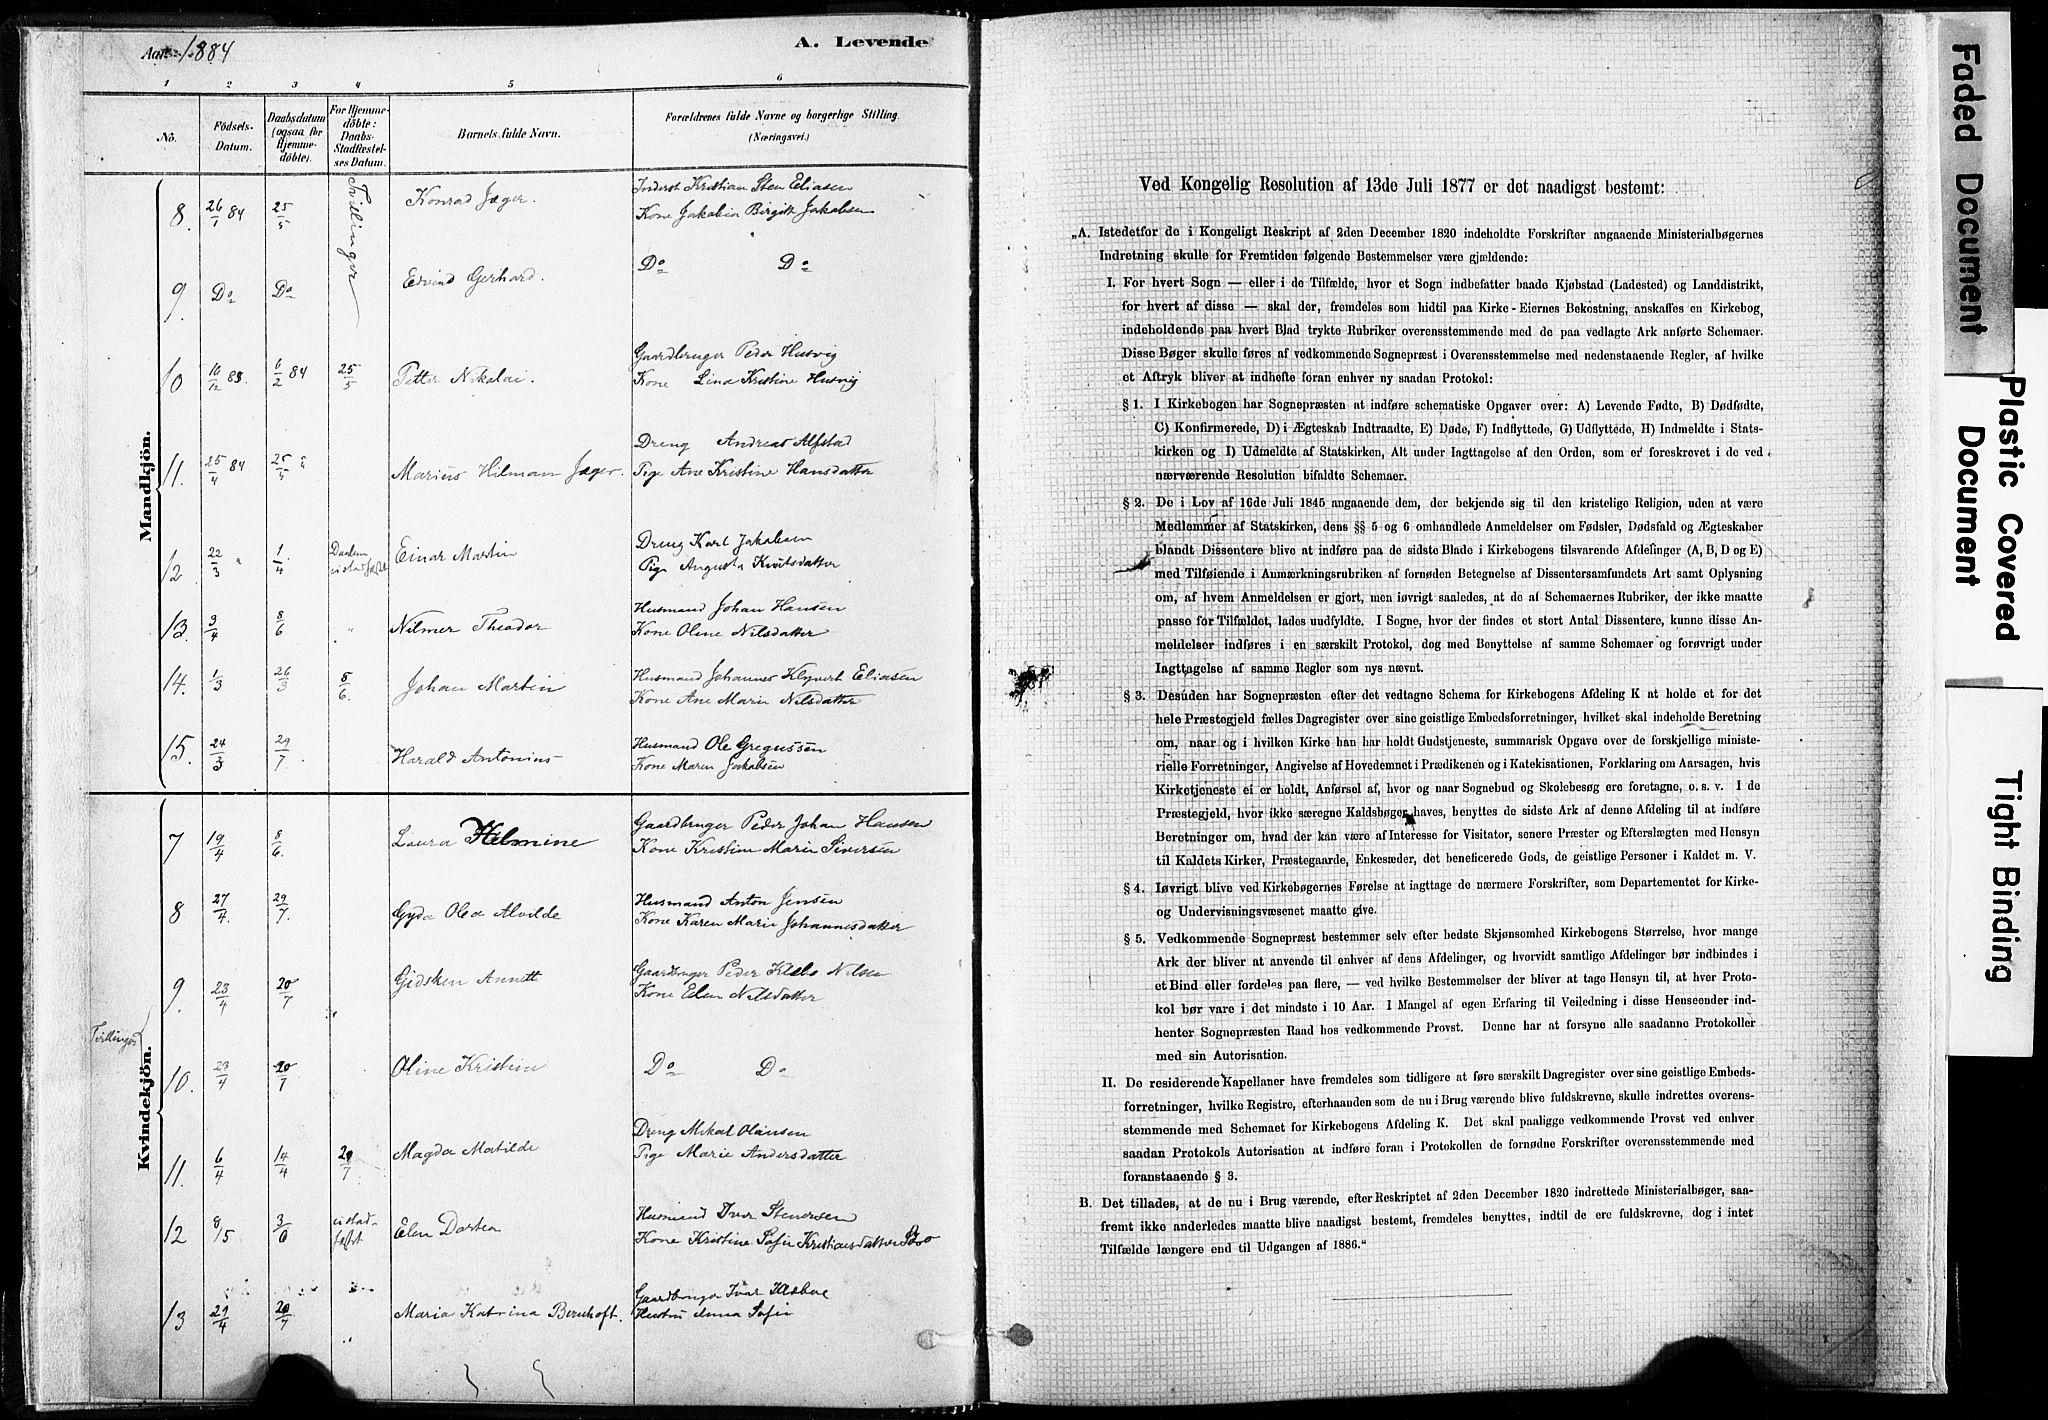 Aar 1884
A. Levende
1 2 3 4 5 6
No.
Födsels-Datum.
Daabsdatum (ogsaa for Hjemme-döbte).
For Hjemme-döbte: Daabs-Stadfæstel-ses Datum.
Barnets fulde Navn.
Forældrenes fulde Navne og borgerlige Stilling.
(Næringsvei.)
Mandkjön.
Tvillinger
8 26/1 84 25/5 Konrad Jæger. Inderst Kristian Sten Eliasen
Kone Jakobia Birgitt Jakobsen
9. Do Do Edvind Gerhard. Do Do
10 10/12 83. 6/2 84 25/5 Petter Nikolai. Gaardbruger Peder Husvig
Kone Lina Kristine Husvig
11. 25/4 84 25/4 " Marius Hilman Jæger. Dreng Andreas Alfstad
Pige Ane Kristine Hansdatter
12. 22/3 " 1/4 Einar Martin Dreng Karl Jakobsen
Pige Augusta
13. 3/4 8/6 " Nilmer Theodor Husmand Johan Hansen
Kone Oline Nilsdatter
14. 1/3 26/3 8/6. Johan Martin Husmand Johannes Klyvert Eliasen
Kone Ane Marie Nilsdatter
15. 24/3 29/7 Harald Antonius Husmand Ole Gregussen
Kone Maren Jakobsen
Kvindekjön.
7 19/4 8/6. Laura Helmine Gaardbruger Peder Johan Hansen
Kone Kristine Marie Siversen
8 27/4. 29/7. Gyda Olea Alvilde Husmand Anton Jensen
Kone Karen Marie Johannesdatter
9. 23/4 20/7 Gidsken Annett Gaardbruger Peder Klebo Nilsen
Kone Elen Nilsdatter
Tvillinger
10. 23/4 20/7 Oline Kristine Do Do
11. 6/4 14/4 20/7 Magda Matilde Dreng Mikal Olausen
Pige Marie Andersdatter
12 8/5 3/6 ei stad-fæstet Elen Dortea Husmand Iver Stenersen
Kone Kristine Sofie Kristiansdatter
13 29/4 20/7 " Maria Katrina Bernhoft. Gaardbruger Ivar Klæboe
Hustru Anna Sofie
Ved Kongelig Resolution af 13de Juli 1877 er det naadigst bestemt:
„A. Istedetfor de i Kongeligt Reskript af 2den December 1820 indeholdte Forskrifter angaaende Ministerialbøgernes
Indretning skulle for Fremtiden følgende Bestemmelser være gjældende:
I. For hvert Sogn — eller i de Tilfælde, hvor et Sogn indbefatter baade Kjøbstad (Ladested) og Landdistrikt,
for hvert af disse — skal der, fremdeles som hidtil paa Kirke-Eiernes Bekostning, anskaffes en Kirkebog,
indeholdende paa hvert Blad trykte Rubriker overensstemmende med de paa vedlagte Ark anførte Schemaer.
Disse Bøger skulle føres af vedkommende Sognepræst i Overensstemmelse med nedenstaaende Regler, af hvilke
et Aftryk bliver at indhefte foran enhver ny saadan Protokol:
§ 1. I Kirkebogen har Sognepræsten at indføre schematiske Opgaver over: A) Levende Fødte, B) Dødfødte,
C) Konfirmerede, D) i Ægteskab Indtraadte, E) Døde, F) Indflyttede, G) Udflyttede, H) Indmeldte i Stats-
kirken og I) Udmeldte af Statskirken, Alt under Iagttagelse af den Orden, som er foreskrevet i de ved
nærværende Resolution bifaldte Schemaer.
§ 2. De i Lov af 16de Juli 1845 angaaende dem, der bekjende sig til den kristelige Religion, uden at være
Medlemmer af Statskirken, dens §§ 5 og 6 omhandlede Anmeldelser om Fødsler, Dødsfald og Ægteskaber
blandt Dissentere blive at indføre paa de sidste Blade i Kirkebogens tilsvarende Afdelinger (A, B, D og E)
med Tilføiende i Anmærkningsrubriken af fornøden Betegnelse af Dissentersamfundets Art samt Oplysning
om, af hvem Anmeldelsen er gjort, men iøvrigt saaledes, at de af Schemaernes Rubriker, der ikke maatte
passe for Tilfældet, lades uudfyldte. I Sogne, hvor der findes et stort Antal Dissentere, kunne disse An-
meldelser indføres i en særskilt Protokol, dog med Benyttelse af samme Schemaer og forøvrigt under
Iagttagelse af samme Regler som nys nævnt.
§ 3. Desuden har Sognepræsten efter det vedtagne Schema for Kirkebogens Afdeling K at holde et for det
hele Præstegjeld fælles Dagregister over sine geistlige Embedsforretninger, hvilket skal indeholde Beretning
om, naar og i hvilken Kirke han har holdt Gudstjeneste, summarisk Opgave over de forskjellige ministe-
rielle Forretninger, Angivelse af Hovedemnet i Prædikenen og i Katekisationen, Forklaring om Aarsagen, hvis
Kirketjeneste ei er holdt, Anførsel af, hvor og naar Sognebud og Skolebesøg ere foretagne, o. s. v. I de
Præstegjeld, hvor ikke særegne Kaldsbøger haves, benyttes de sidste Ark af denne Afdeling til at indføre
Beretninger om, hvad der kan være af Interesse for Visitator, senere Præster og Efterslægten med Hensyn
til Kaldets Kirker, Præstegaarde, Enkesæder, det beneficerede Gods, de geistlige Personer i Kaldet m. V.
§ 4. Iøvrigt blive ved Kirkebøgernes Førelse at iagttage de nærmere Forskrifter, som Departementet for Kirke-
og Undervisningsvæsenet maatte give.
§ 5. Vedkommende Sognepræst bestemmer selv efter bedste Skjønsomhed Kirkebogens Størrelse, hvor mange
Ark der bliver at anvende til enhver af dens Afdelinger, og hvorvidt samtlige Afdelinger bør indbindes i
et Bind eller fordeles paa flere, — ved hvilke Bestemmelser der bliver at tage Hensyn til, at hver Proto-
kol bør vare i det mindste i 10 Aar. I Mangel af egen Erfaring til Veiledning i disse Henseender ind-
henter Sognepræsten Raad hos vedkommende Provst. Denne har at forsyne alle saadanne Protokoller
med sin Autorisation.
II. De residerende Kapellaner have fremdeles som tidligere at føre særskilt Dagregister over sine geistlige Embeds-
forretninger, hvilke Registre, efterhaanden som de nu i Brug værende blive fuldskrevne, skulle indrettes overens-
stemmende med Schemaet for Kirkebogens Afdeling K. Det skal paaligge vedkommende Provst ved enhver
saadan Protokols Autorisation at indføre foran i Protokollen de fornødne Forskrifter overensstemmende med
foranstaaende § 3.
B. Det tillades, at de nu i Brug værende, efter Reskriptet af 2den December 1820 indrettede Ministerialbøger, saa-
fremt ikke anderledes maatte blive naadigst bestemt, fremdeles benyttes, indtil de ere fuldskrevne, dog i intet
Tilfælde længere end til Udgangen af 1886.“
Faded Document
Plastic Covered
Document
Tight Binding